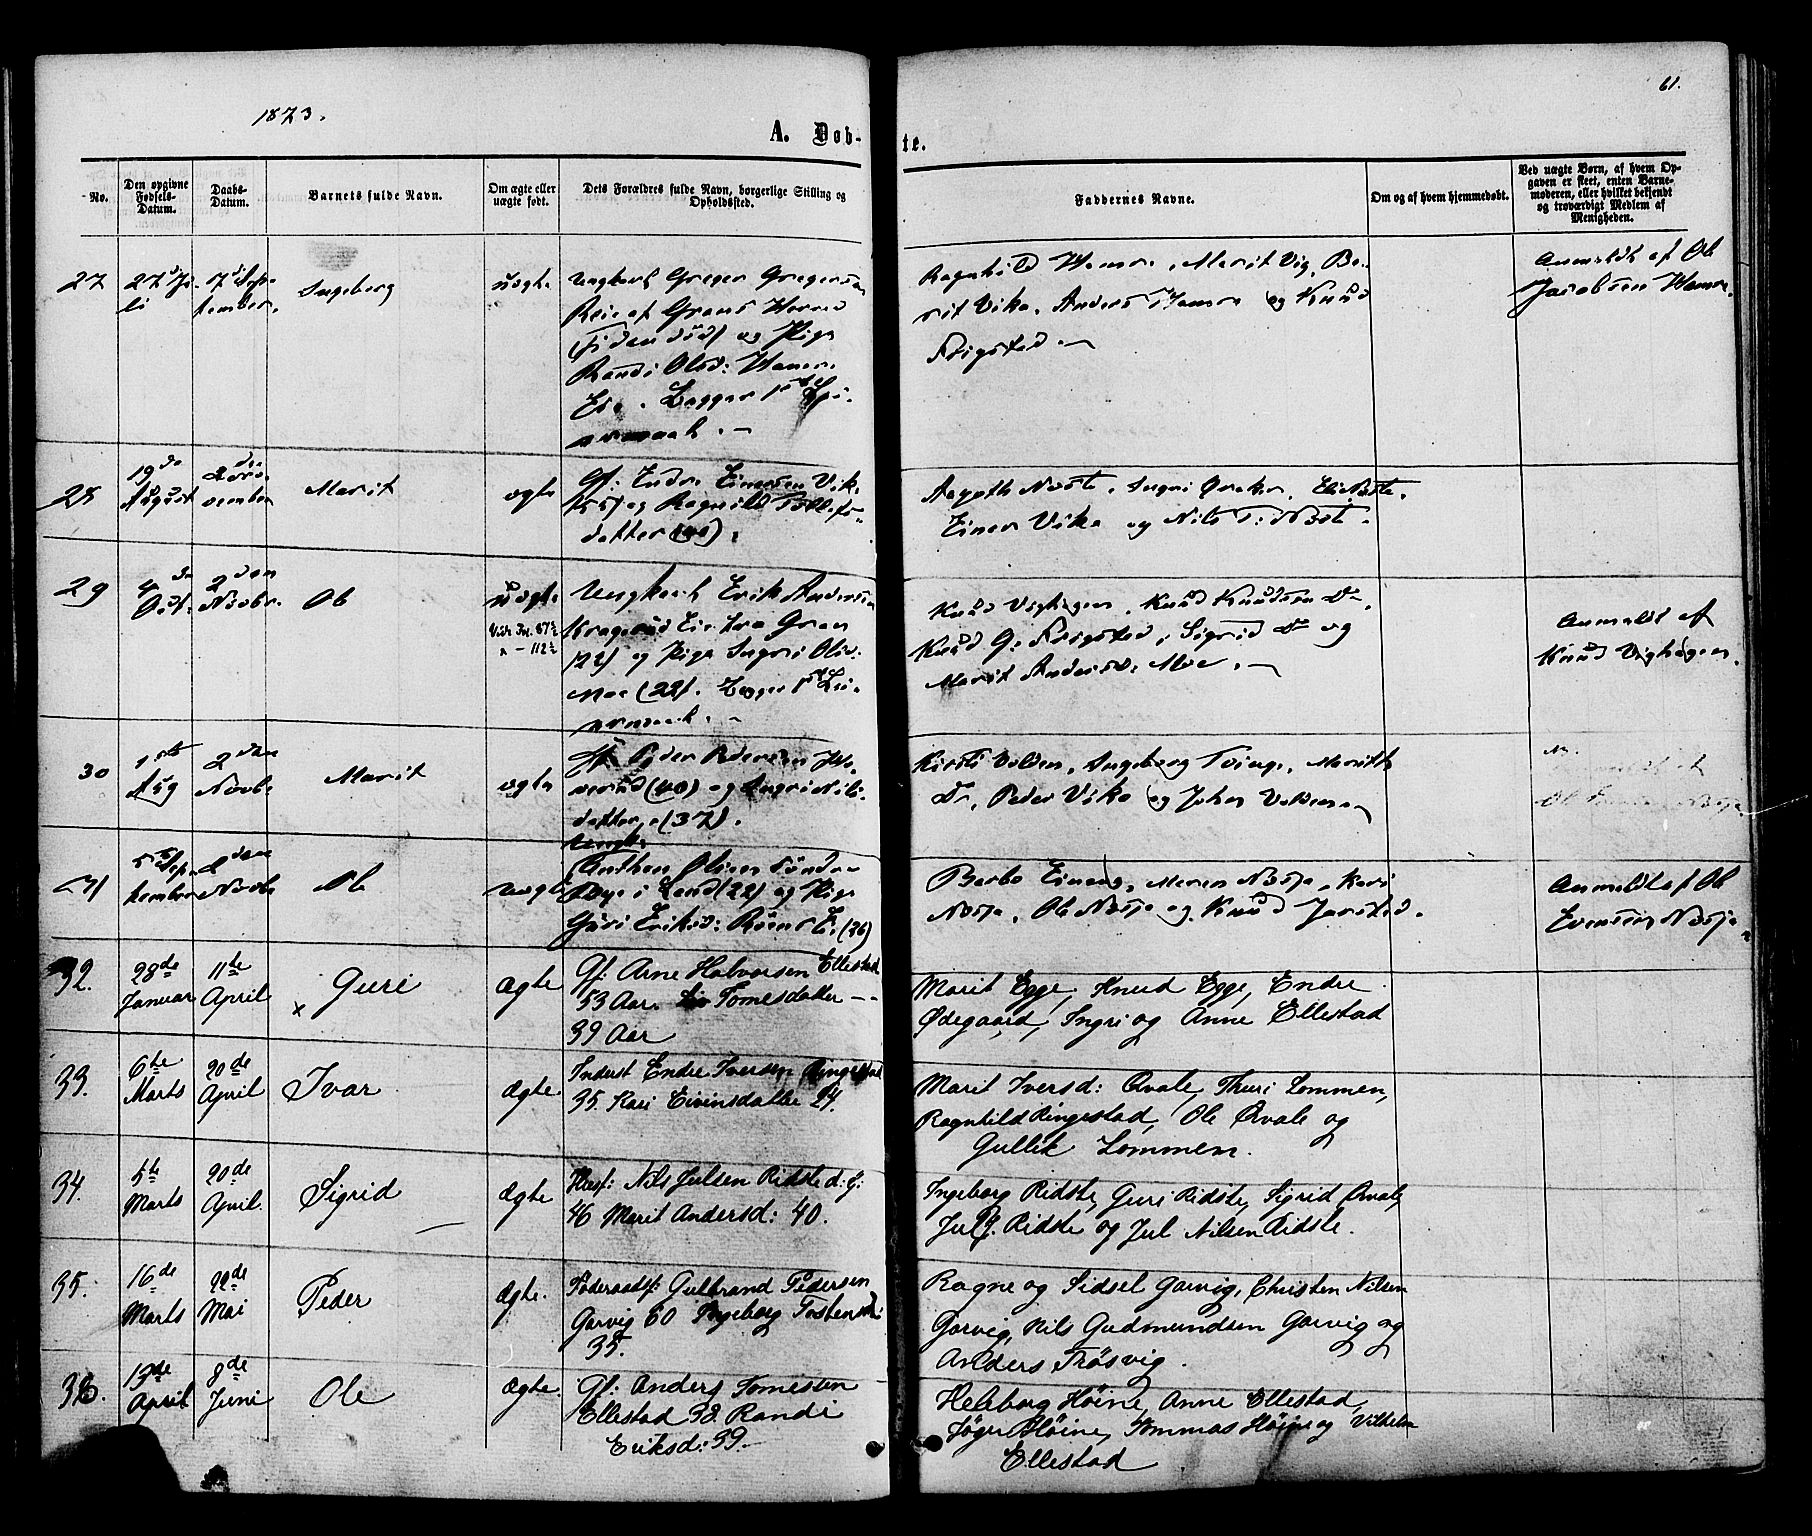 61.
1873.
A. Døb-
te.
No.
Den opgivne Fødsels-Datum.
Daabs-Datum.
Barnets fulde Navn.
Om ægte eller uægte født.
Dets Forældres fulde Navn, borgerlige Stilling og Opholdssted.
Faddernes Navne.
Om og af hvem hjemmedøbt.
Ved uægte Børn, af hvem Op-
gaven er skeet, enten Barne-
moderen, eller hvilket bekjendt
og troværdigt Medlem af
Menigheden.
27
27de Ju-
li
7de Sep-
tember.
Ingeberg
uægte
Ungkarl Greger Gregersen
Reie af Grans
og Pige
Randi Olsd: Hamre
Eie. Begges 1ste Lei-
ermaal. -
Ragnhild Hamre, Marit Vig, Be-
rit Vika, Anders Hamre og Knud
Frigstad. -
Anmeldt af Ole
Jacobsen Hamre.
28
19de
August
2den No-
vember
Marit
ægte
Gf: Endre Einersen Vik
55) og Ragnild Tollefs-
datter (40).
Aagoth Næste, Ingri
Einer Vika og Nils T: Næste.
29
4de
Oct.
2den
Novbr.
Ole
uægte
Ungkarl Erik Andersen
Kragerud Eie fra Gran
(22) og Pige Ingri Olsd:
Moe (22). Begges 1ste Lei-
ermaal. -
Knud Vighagen, Knud Knudsen Do.
Knud G. Frigstad, Sigrid Do og
Marit Andersd: Moe. -
Anmeldt af
Knud Vighagen.
30
1ste
Aug
2den
Novbr
Marit
ægte
Gf Peder Pedersen
(40) og Ingri Nils-
datter. (37).
Kirsti Volden, Ingeberg Tvinge, Marith
Do, Peder Vika og Johan Volden
31
5te Sep-
tember
2den
Novbr
Ole
uægte
Ungk.
Anthon Olsen Søndre
i Land (22) og Pige
Guri Eriksd: E. (26)
Barbo Einang, Maren Næsja, Kari
Næsja, Ole Næsja og Knud Jarstad.
Anmeldt af Ole
Evensen Næsja
32.
28de
Januar
11te
April
× Guri
Ægte
Gf: Arne Halvorsen Ellestad
53 Aar. Liv Tomesdatter - -
39 Aar
Marit Egge, Knud Egge, Endre
Ødegaard, Ingri og Anne Ellestad
33.
6te
Marts
20de
April
Ivar
Ægte
Inderst Endre Iversen Ringestad
35. Kari Eivinsdatter 24.
Marit Iversd: Qvale, Thuri Lommen,
Ragnhild Ringestad, Ole Qvale og
Gullik Lommen.
34.
5te
Marts
20de
April.
Sigrid
Ægte
Husf: Nils Julsen Ridste d: y:
46 Marit Andersd: 40.
Ingeborg Ridste, Guri Ridste, Sigrid Qvale,
Jul J. Ridste og Jul Nilsen Ridste.
35.
16de
Marts
22de
Mai
Peder
Ægte.
Føderaadsf: Gulbrand Pedersen
Garvig 60 Ingeborg Tostensd:
35.
Ragne og Sidsel Garvig, Christen Nilsen
Garvig, Nils Gudmundsen Garvig og
Anders Trøsvig.
36.
13de
April
8de
Juni
Ole
Ægte.
Gf: Anders Tomesen
Ellestad 38. Randi
Eriksd: 39.
Helleborg Høine, Anne Ellestad,
Jøger Høine, Tommas Høine og Vilhelm
Ellestad